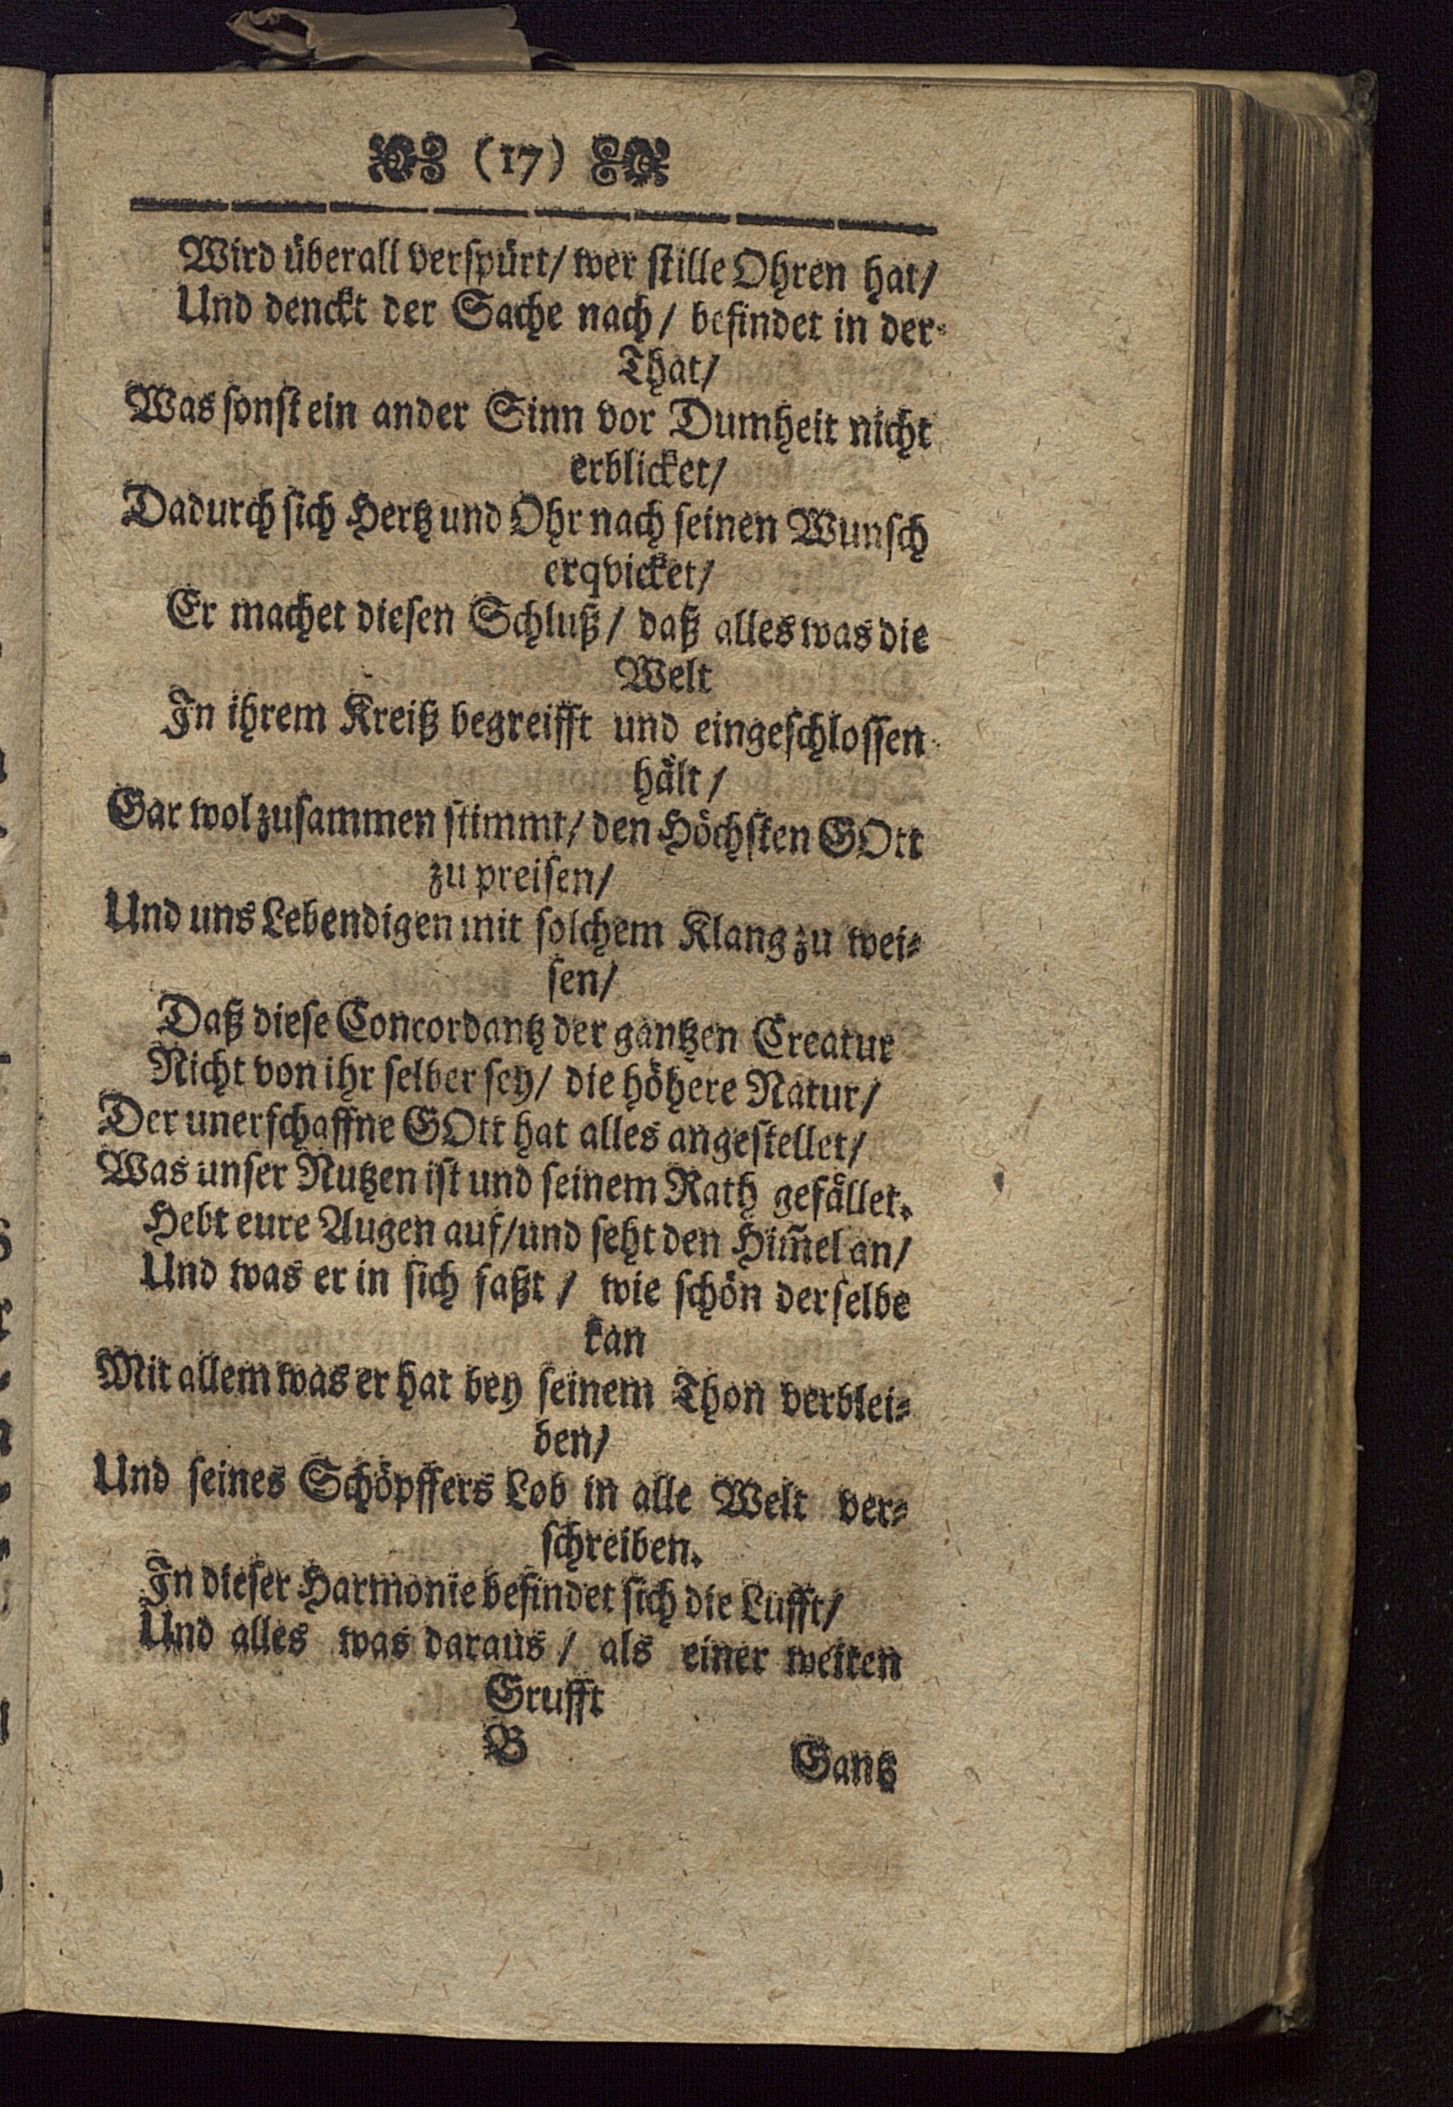 (17)
Wird überall verspürt/ wer stille Ohren hat/
Und denckt der Sache nach/ befindet in der
That/
Was sonst ein ander Sinn vor Dumheit nicht
erblicket/
Dadurch sich Hertz und Ohr nach seinen Wunsch
erqvicket/
Er machet diesen Schluß/ daß alles was die
Welt
In ihrem Kreiß begreifft und eingeschlossen
hält/
Gar wol zusammen stimmt/ den Höchsten GOtt
zu preisen/
Und uns Lebendigen mit solchem Klang zu wei⸗
sen/
Daß diese Concordantz der gantzen Creatur
Nicht von ihr selber sey/ die höhere Natur/
Der unerschaffne GOtt hat alles angestellet/
Was unser Nutzen ist und seinem Rath gefället.
Hebt eure Augen auf/und seht den Him̃el an/
Und was er in sich faßt/ wie schön derselbe
kan
Mit allem was er hat bey seinem Thon verblei⸗
ben/
Und seines Schöpffers Lob in alle Welt ver⸗
schreiben.
In dieser Harmonie befindet sich die Lufft/
Und alles was daraus/ als einer weiten
Grufft
B Gantz